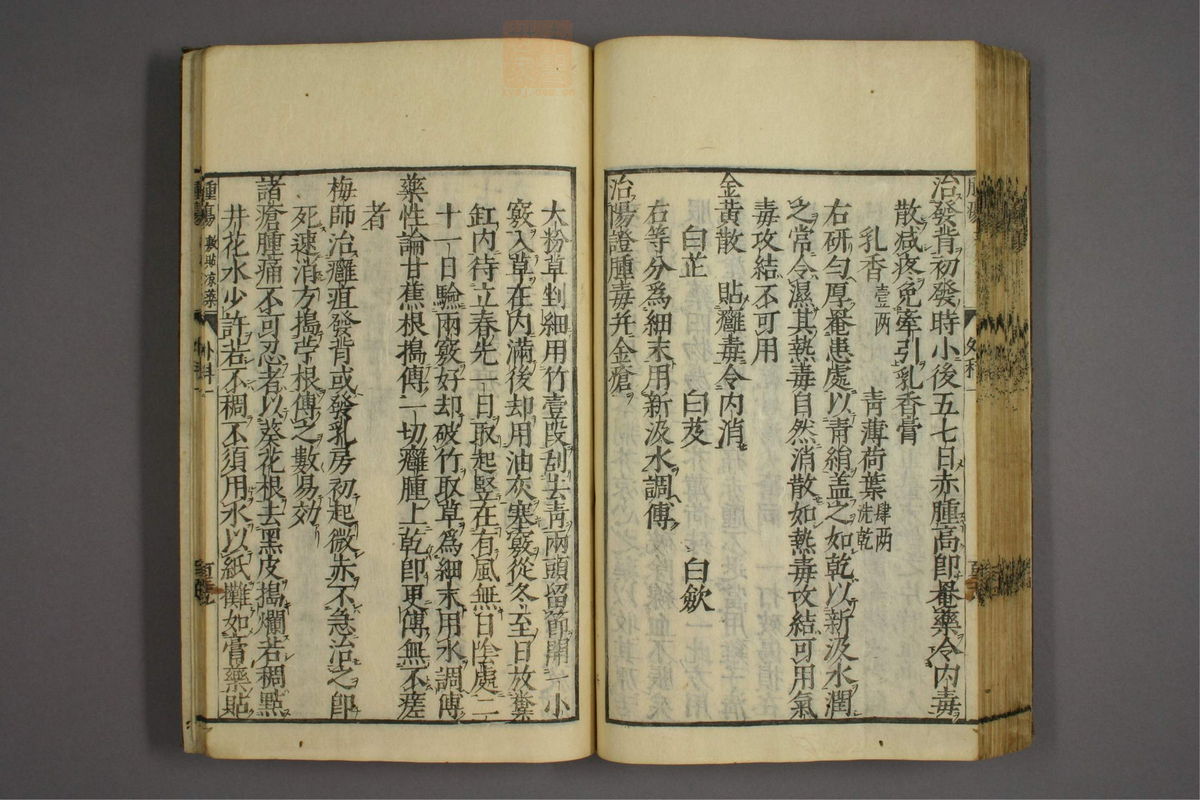 治發背初發時小後五七日赤腫高卽罨藥令内毒
散減疼免牽引乳香膏
乳香壹两 靑薄荷葉肆两洗乾
右研勻厚罨患處以靑絹盖之如乾以新汲水潤
之常令濕其熱毒自然消散如熱毒攻結可用氣
毒攻結不可用
金黄散 貼癰毒令内消
白芷 白芨 白歛
右等分爲細末用新汲水調傅
治惕證腫毒并金瘡
大粉草剉細用竹壹段刮去靑兩頭留節開一小
竅入草在内滿後却用油灰塞竅從冬至日放糞
缸内待立春先一日取起竪在有風無日陰處二
十一日驗雨竅好却破竹取草爲細末用水調傅
藥性論甘蕉根搗傅一切癰腫上乾卽更傅無不瘥
者
梅師治癰疽發背或發乳房初起微赤不急治之卽
死速消方搗苧根傅之數易効
諸瘡腫痛不可忍者以葵花根去黑皮搗爛若稠點
井花水少許若不稠不須用水以紙攤如膏藥貼
腫瘍 敷貼凉藥 外科一